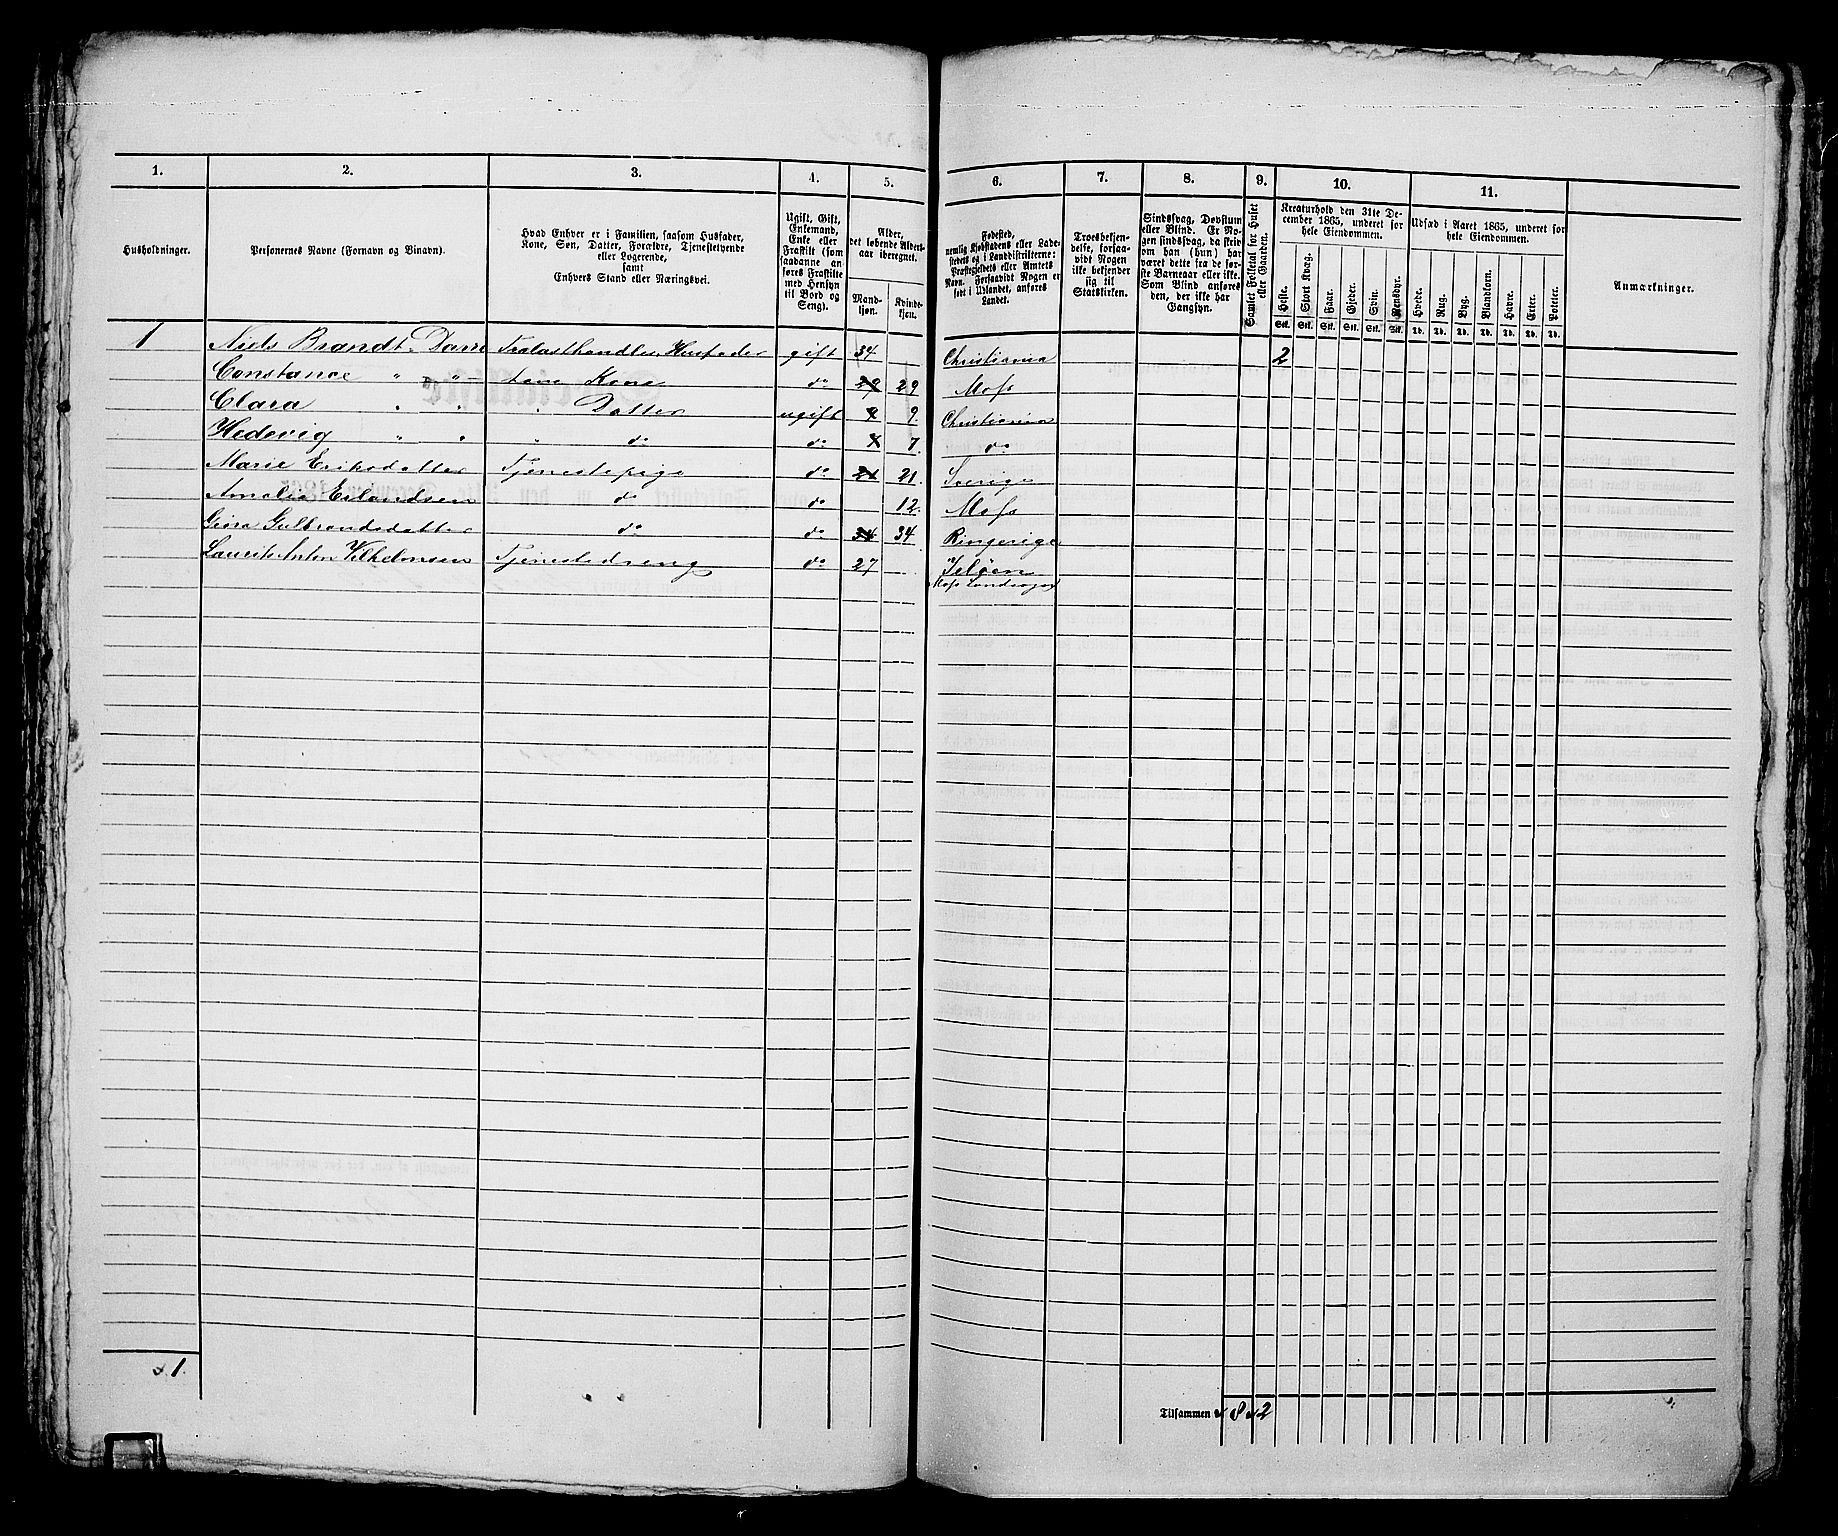 1. 2. 3. 4. 5. 6. 7. 8. 9. 10. 11.
Husholdninger.
Personernes Navne (Fornavn og Binavn).
Hvad Enhver er i Familien, saasom Husfader,
Kone, Søn, Datter, Forældre, Tjenestetyende
eller Logerende,
samt
Enhvers Stand eller Næringsvei.
Ugift, Gift,
Enkemand,
Enke eller
Fraskilt (som
saadanne an-
føres Fraskilte
med Hensyn
til Bord og
Seng).
Alder,
det løbende Alders-
aar iberegnet.
Mand-
kjøn.
Kvinde-
kjøn.
Fødested,
nemlig Kjøbstadens eller Lade-
stedets og i Landdistrikterne:
Præstegjeldets eller Amtets
Navn. Forsaavidt Nogen er
født i Udlandet, anføres
Landet.
Troesbekjen-
delse, forsaa-
vidt Nogen
ikke bekjender
sig til
Statskirken.
Sindssvag, Døvstum
eller Blind. Er No-
gen sindssvag, da skriv
om han (hun) har
været dette fra de før-
ste Barneaar eller ikke.
Som Blind anføres
den, der ikke har
Gangsyn.
Samlet Folketal for Huset
eller Gaarden.
Kreaturhold den 31te De-
cember 1865, underet for
hele Eiendommen.
Heste. Stort Kvæg. Faar. Gjeder. Svin. Rensdyr.
Stk. Stk. Stk. Stk. Stk. Stk.
Udsæd i Aaret 1865, underet for
hele Eiendommen.
Hvede. Rug. Byg. Blandkorn. Havre. Erter. Poteter.
Td. Td. Td. Td. Td. Td. Td.
Anmærkninger.
1 Niels Brandt Dam Trælasthandler, Husfader gift 34 Christiania 2
Constance " " Kone do 29 29 Moss
Clara " " " Datter ugift 9 Christiania
Hedevig " " " do do 7 do
Marie Eriksdatter Tjenestepige do 21 21. Sverige
Amalia Erlandsen do do 12. Moss
Gina Gulbrandsdatter do do 34 34 Ringerige
Laurits Anton Vilhelmsen Tjenestedreng do 27 Jeløen
Moss Landsogn
1.
Tilsammen 8 2